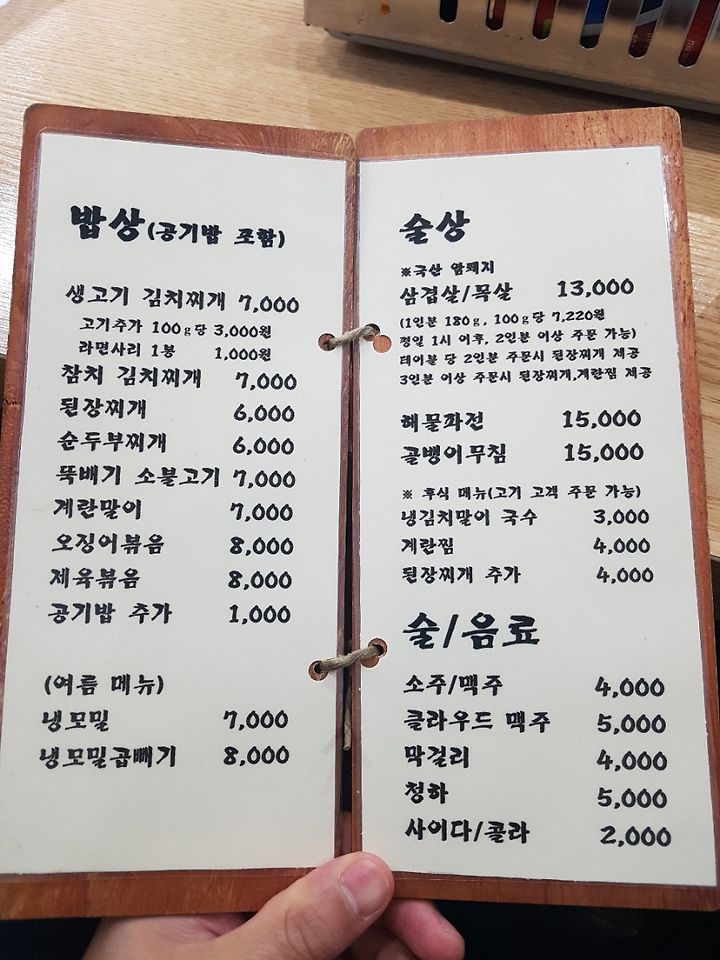 밥상(공기밥 포함)
생고기 김치찌개 7,000
고기추가 100g당 3,000원
라면사리 1봉 1,000원
참치 김치찌개 7,000
된장찌개 6,000
순두부찌개 6,000
뚝배기 소불고기 7,000
계란말이 7,000
오징어볶음 8,000
제육볶음 8,000
공기밥 추가 1,000
(여름 메뉴)
냉모밀 7,000
냉모밀곱빼기 8,000
술상
※국산 암퇘지
삼겹살/목살 13,000
(1인분 180g, 100g당 7,220원
평일 1시 이후, 2인분 이상 주문 가능)
테이블 당 2인분 주문시 된장찌개 제공
3인분 이상 주문시 된장찌개,계란찜 제공
해물파전 15,000
골뱅이무침 15,000
※ 후식 메뉴(고기 고객 주문 가능)
냉김치말이 국수 3,000
계란찜 4,000
된장찌개 추가 4,000
술/음료
소주/맥주 4,000
클라우드 맥주 5,000
막걸리 4,000
청하 5,000
사이다/콜라 2,000